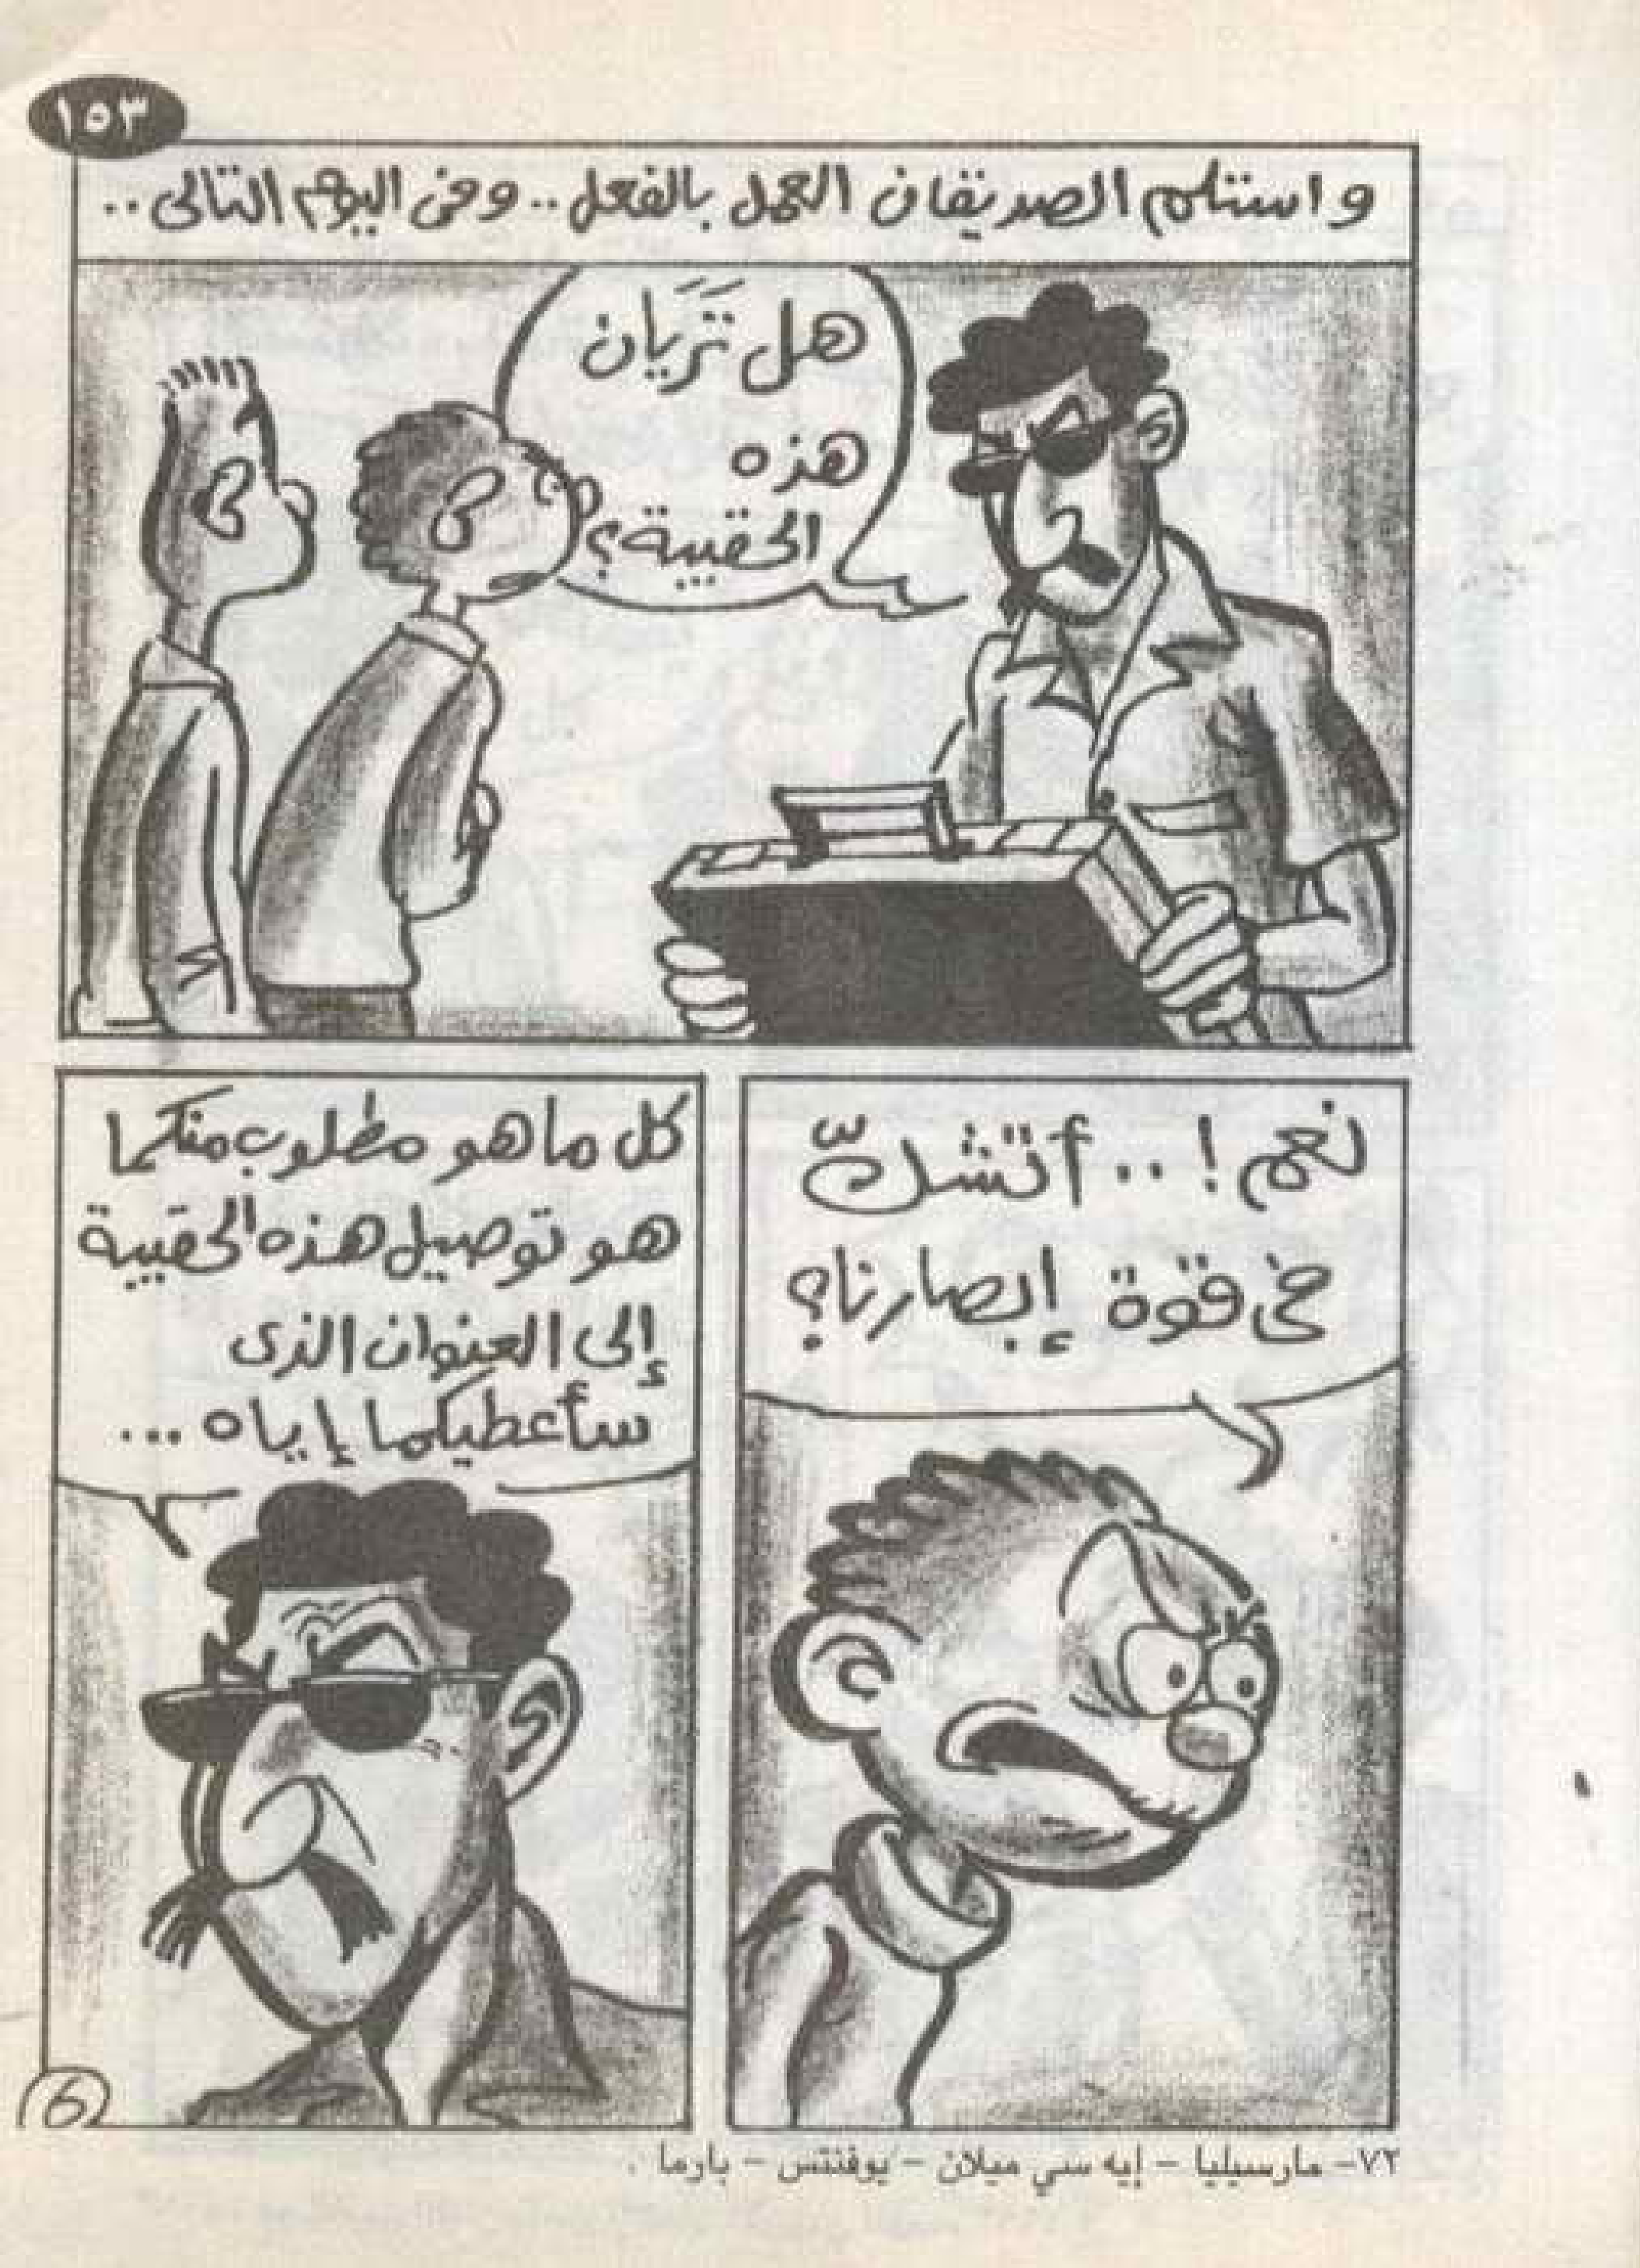 ١٥٣
واستلم الصديقان العمل بالفعل.. وفى اليوم التالى..
هل تَرَيان
هذه
الحقيبة؟
نعم!.. أتشكّ
فى قوة إبصارنا؟
كل ما هو مطلوب منكما
هو توصيل هذه الحقيبة
إلى العنوان الذى
سأعطيكما إياه...
6
٧٢- مارسيليا - إيه سي ميلان - يوفنتس - بارما .